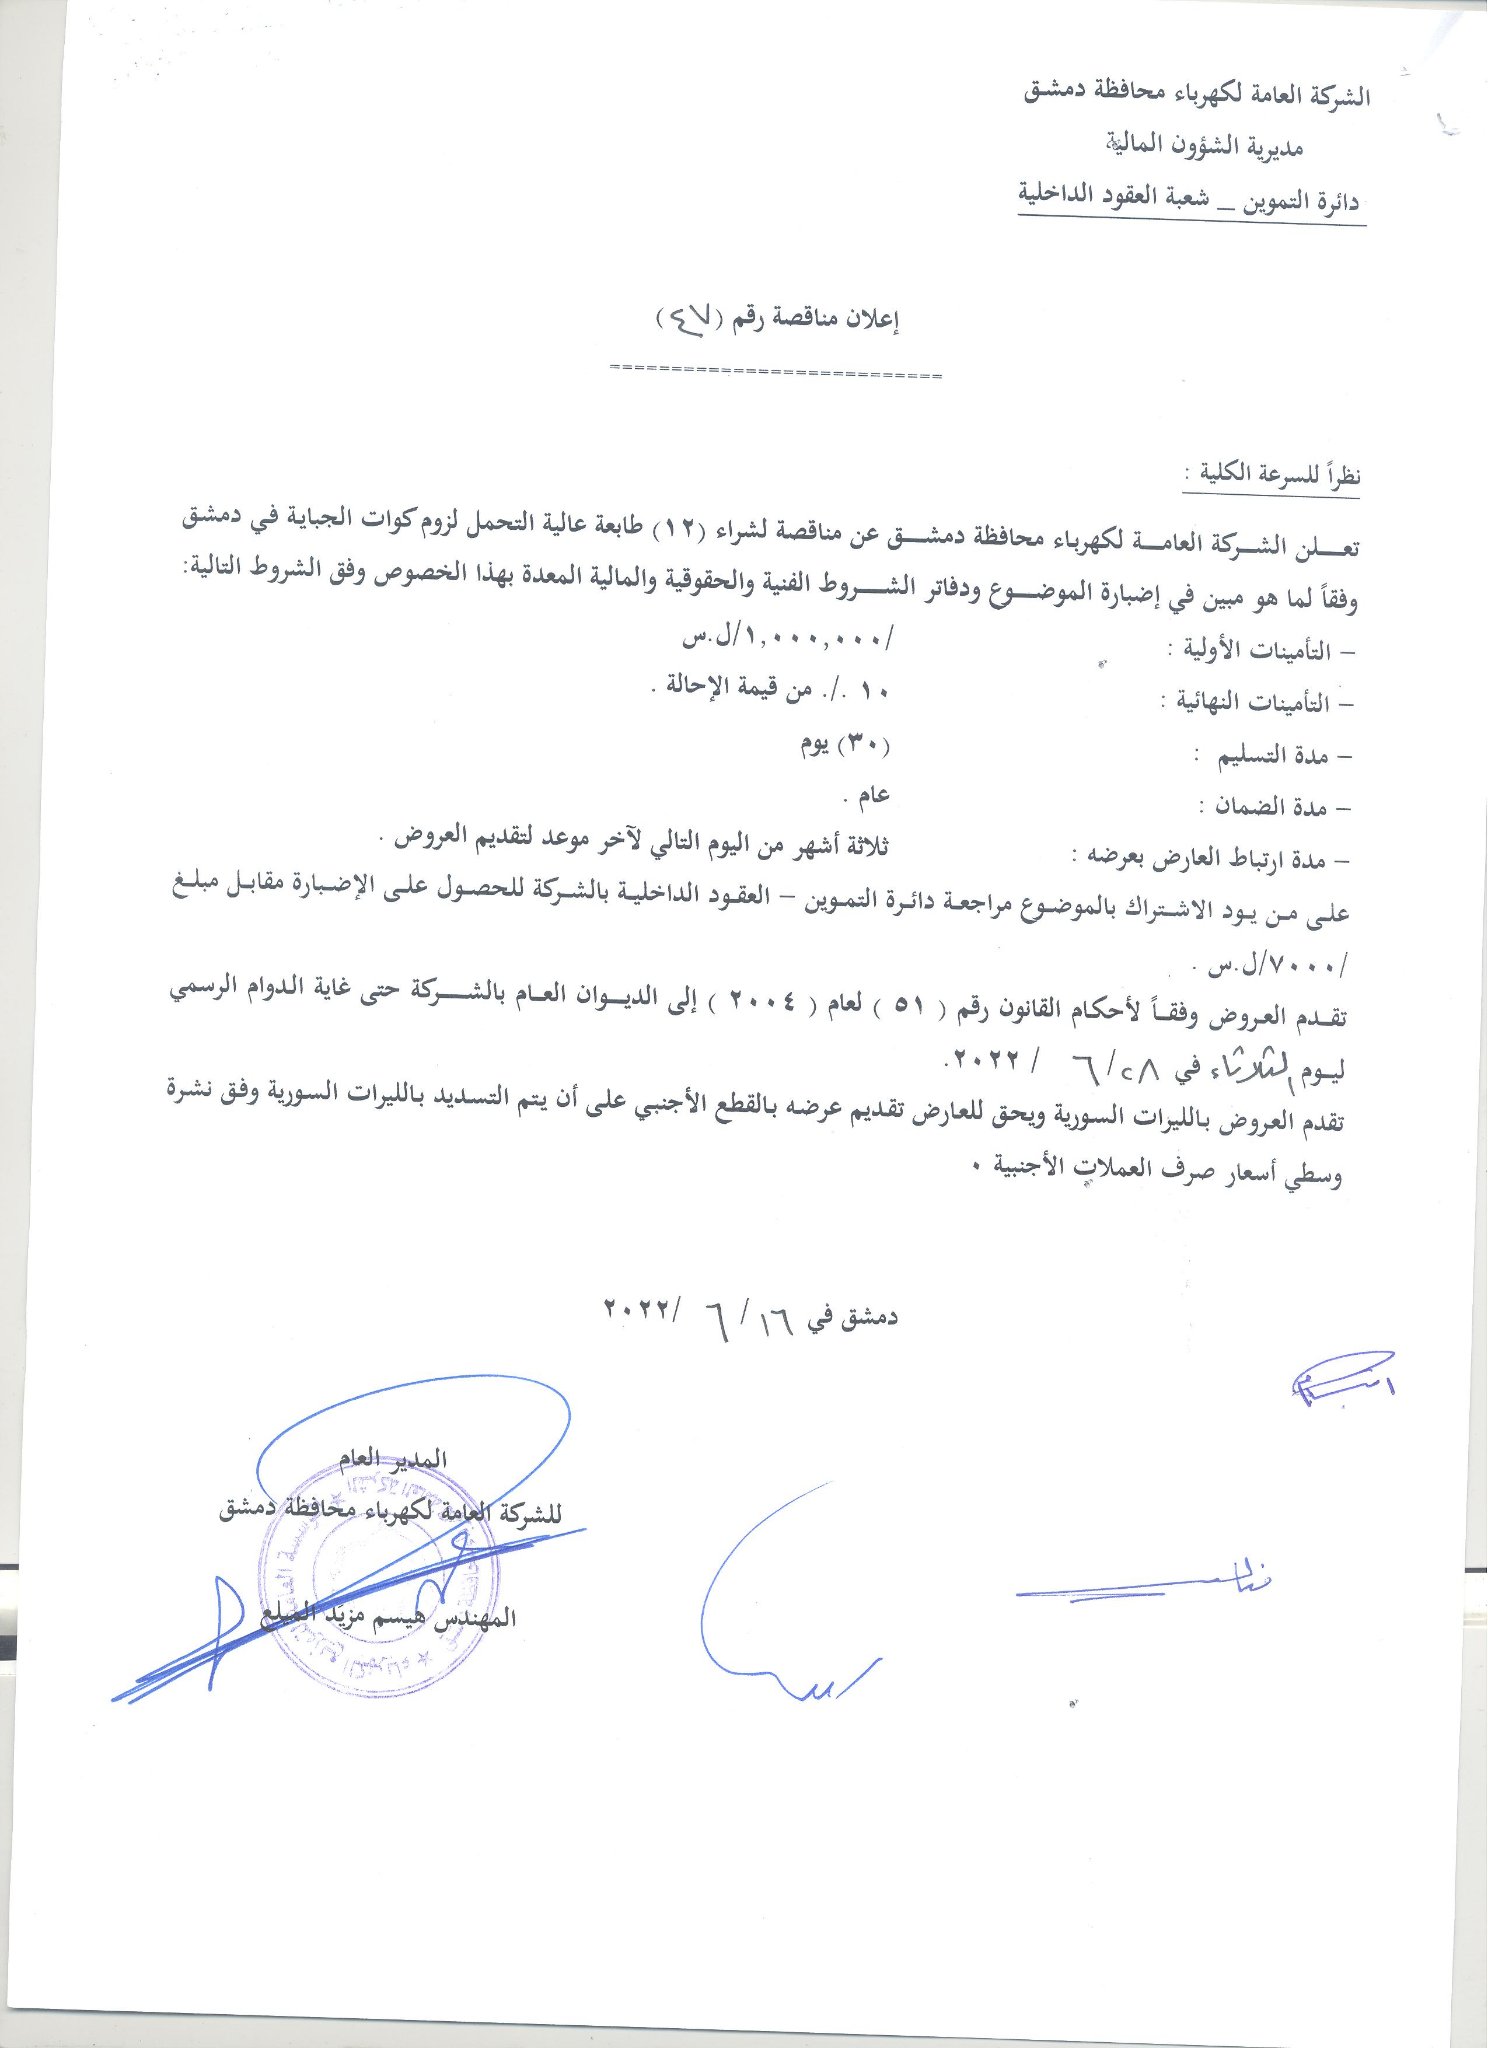 الشركة العامة لكهرباء محافظة دمشق
مديرية الشؤون المالية
دائرة التموين – شعبة العقود الداخلية
إعلان مناقصة رقم (٤٧)
=========================
نظراً للسرعة الكلية :
تعلن الشركة العامة لكهرباء محافظة دمشق عن مناقصة لشراء (١٢) طابعة عالية التحمل لزوم كوات الجباية في دمشق
وفقاً لما هو مبين في إضبارة الموضوع ودفاتر الشروط الفنية والحقوقية والمالية المعدة بهذا الخصوص وفق الشروط التالية:
– التأمينات الأولية : /١,٠٠٠,٠٠٠/ل.س
– التأمينات النهائية : ١٠ ./. من قيمة الإحالة .
– مدة التسليم : (٣٠) يوم
– مدة الضمان : عام .
– مدة ارتباط العارض بعرضه : ثلاثة أشهر من اليوم التالي لآخر موعد لتقديم العروض .
على من يود الاشتراك بالموضوع مراجعة دائرة التموين – العقود الداخلية بالشركة للحصول على الإضبارة مقابل مبلغ
/٧٠٠٠/ل.س .
تقدم العروض وفقاً لأحكام القانون رقم ( ٥١ ) لعام ( ٢٠٠٤ ) إلى الديوان العام بالشركة حتى غاية الدوام الرسمي
ليوم الثلاثاء في ٢٨/ ٦ / ٢٠٢٢.
تقدم العروض بالليرات السورية ويحق للعارض تقديم عرضه بالقطع الأجنبي على أن يتم التسديد بالليرات السورية وفق نشرة
وسطي أسعار صرف العملات الأجنبية ٠
دمشق في ١٦/ ٦ /٢٠٢٢
المدير العام
للشركة العامة لكهرباء محافظة دمشق
المهندس هيسم مزيَد الميلع